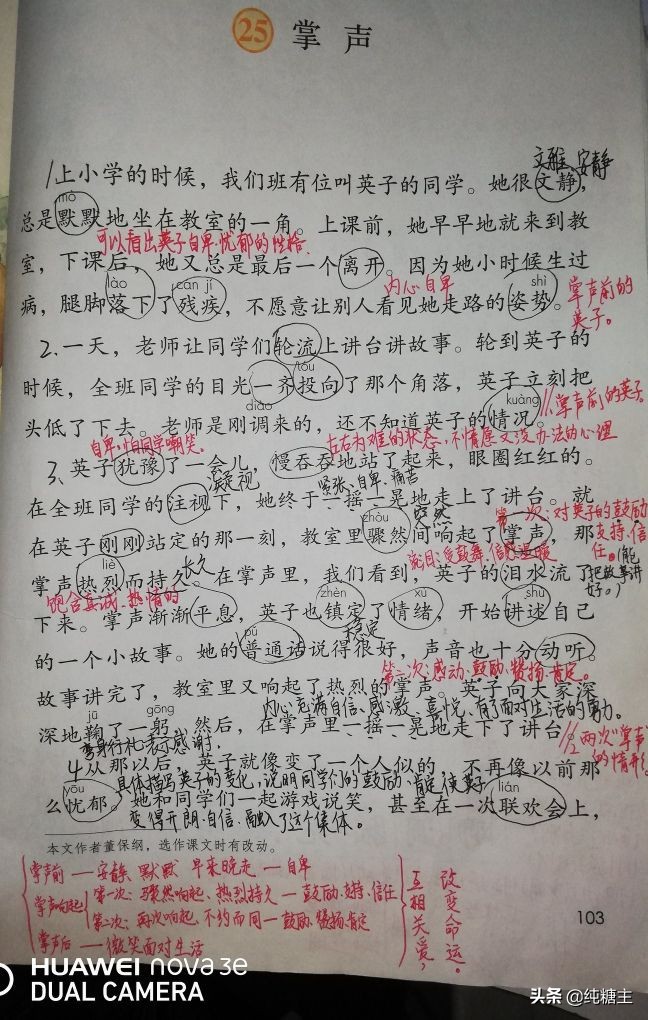 25 掌声
文雅、安静
1上小学的时候，我们班有位叫英子的同学。她很文静，
mò
总是默默地坐在教室的一角。上课前，她早早地就来到教
可以看出英子自卑、忧郁的性格.
室，下课后，她又总是最后一个离开。因为她小时候生过
lào cán jí 内心自卑 shì
病，腿脚落下了残疾，不愿意让别人看见她走路的姿势。
掌声前的
英子。
2.一天，老师让同学们轮流上讲台讲故事。轮到英子的
tóu
时候，全班同学的目光一齐投向了那个角落，英子立刻把
diào kuàng
头低了下去。老师是刚调来的，还不知道英子的情况。
掌声前的英子
自卑,怕同学嘲笑。
左右为难的状态,不情愿又没办法的心理
3、英子犹豫了一会儿，慢吞吞地站了起来，眼圈红红的。
凝视 紧张、自卑、痛苦
在全班同学的注视下，她终于一摇一晃地走上了讲台。就
zhòu 突然
第一次:对英子的鼓励
在英子刚刚站定的那一刻，教室里骤然间响起了掌声，那
支持、信任。
liè 长久
掌声热烈而持久。在掌声里，我们看到，英子的泪水流了
(能把故事讲好。)
饱含真诚、热情的 zhèn xù shù
下来。掌声渐渐平息，英子也镇定了情绪，开始讲述自己
pǔ 稳定
的一个小故事。她的普通话说得很好，声音也十分动听。
第二次:感动、鼓励、赞扬、肯定。
故事讲完了，教室里又响起了热烈的掌声。英子向大家深
jū gōng 内心充满自信、感激、喜悦、有了面对生活的勇力。
深地鞠了一躬，然后，在掌声里一摇一晃地走下了讲台。
弯身行礼表示感谢.
2两次"掌声"
的情形
4从那以后，英子就像变了一个人似的，不再像以前那
具体描写英子的变化,说明同学们的鼓励、肯定使英子
yōu lián
么忧郁。她和同学们一起游戏说笑，甚至在一次联欢会上，
变得开朗、自信、融入了这个集体。
本文作者董保纲，选作课文时有改动。
掌声前—安静、默默 早来晚走—自卑
掌声响起 第一次:骤然响起、热烈持久—鼓励、支持、信任
第二次:再次响起、不约而同—鼓励、赞扬、肯定
掌声后—微笑面对生活
互相关爱,
改变人命运。
103
HUAWEI nova 3e
DUAL CAMERA
头条 @纯糖主